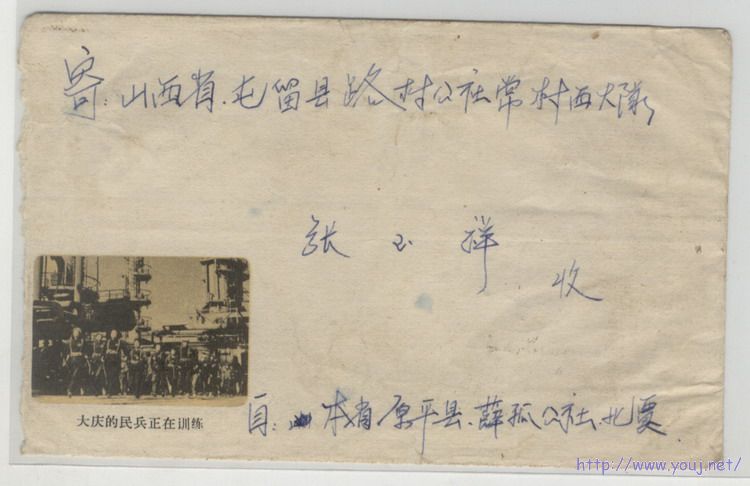 寄:山西省.屯留县路村公社常村西大隊
张玉祥
收
大庆的民兵正在训练
自:本省原平县.薛孤公社.北贾.
http://www.youj.net/